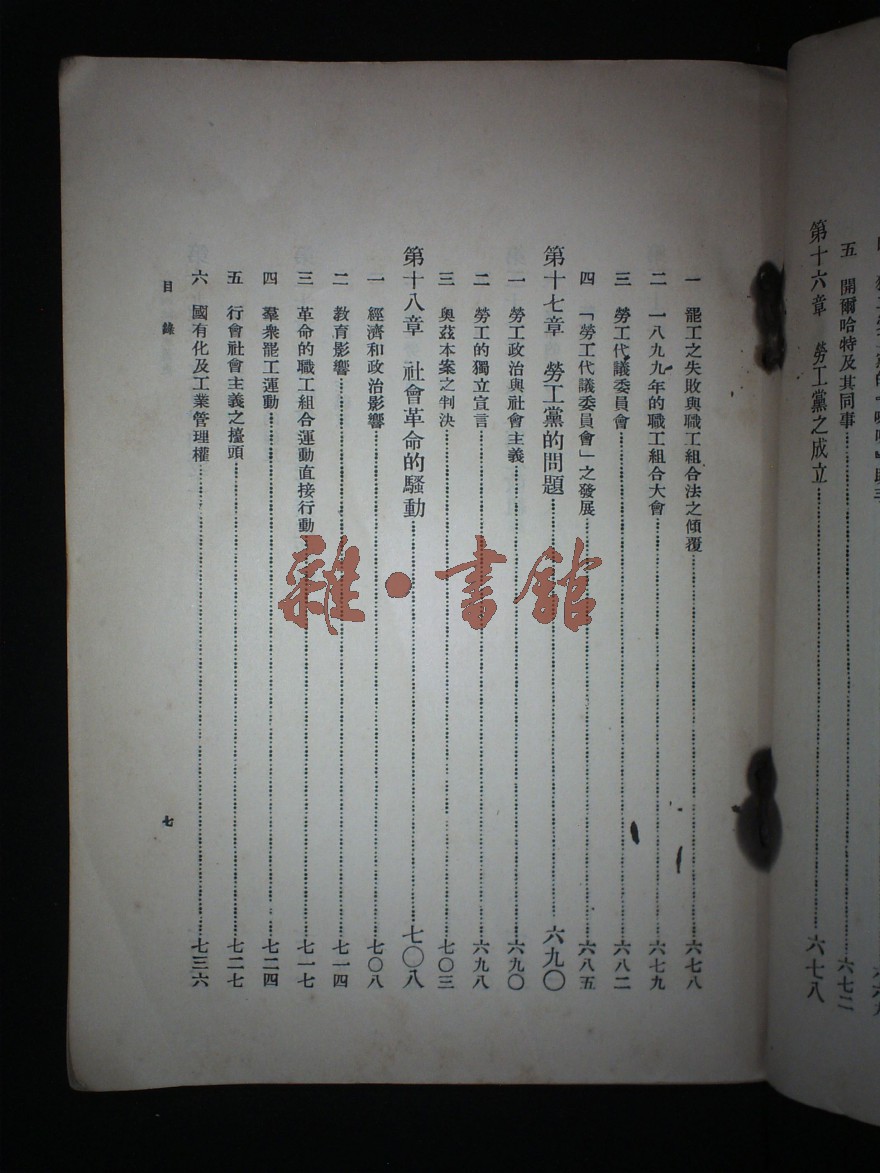 五 開爾哈特及其同事 六七二
第十六章 勞工黨之成立 六七八
一 罷工之失敗與職工組合法之傾覆 六七八
二 一八九九年的職工組合大會 六七九
三 勞工代議委員會 六八二
四 「勞工代議委員會」之發展 六八五
第十七章 勞工黨的問題 六九〇
一 勞工政治與社會主義 六九〇
二 勞工的獨立宣言 六九八
三 奧茲本案之判決 七〇三
第十八章 社會革命的騷動 七〇八
一 經濟和政治影響 七〇八
二 教育影響 七一四
三 革命的職工組合運動直接行動 七一七
四 羣衆罷工運動 七二四
五 行會社會主義之擡頭 七二七
六 國有化及工業管理權 七三六
目錄 七
雜·書館